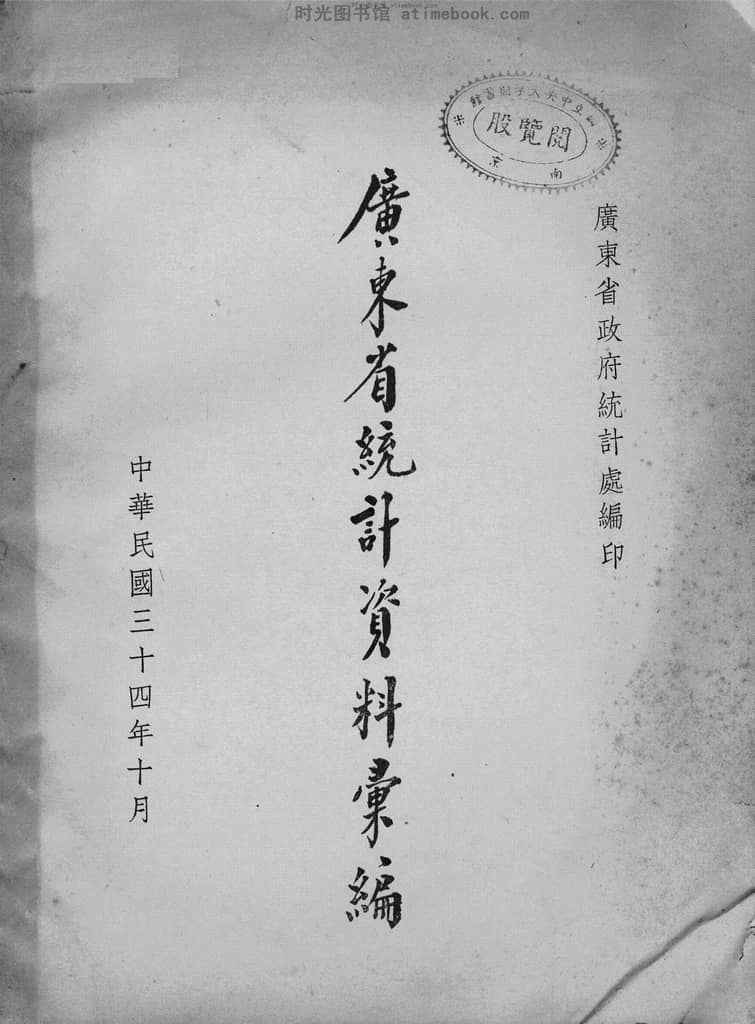 时光图书馆 atimebook.com
國立中央大學圖書館
閱覽股
南京
廣東省政府統計處編印
廣東省統計資料彙編
中華民國三十四年十月